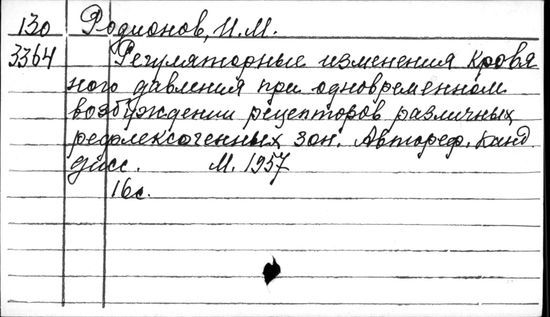 130 Родионов, И.М.
3364 Регуляторные изменения кровя
ного давления при одновременном
возбуждении рецепторов различных
рефлексогенных зон. Автореф. канд
дисс. М. 1957
16с.